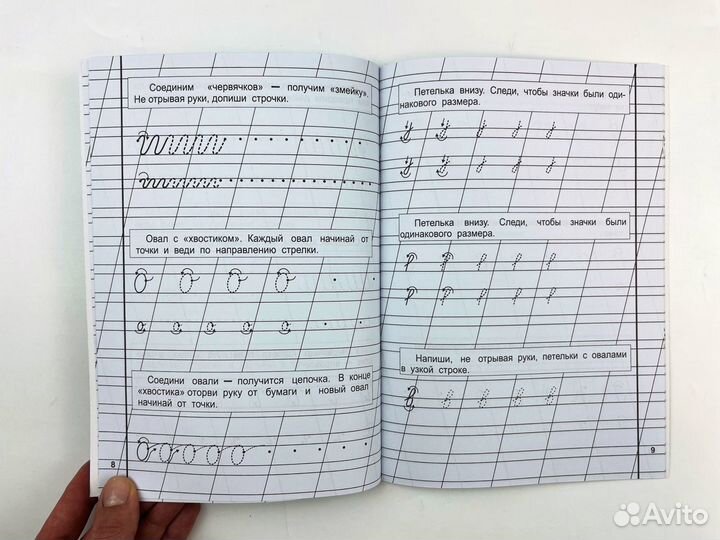 Соединим «червячков» — получим «змейку».
Не отрывая руки, допиши строчки.
Овал с «хвостиком». Каждый овал начинай от
точки и веди по направлению стрелки.
Соедини овали — получится цепочка. В конце
«хвостика» оторви руку от бумаги и новый овал
начинай от точки.
8
Петелька внизу. Следи, чтобы значки были оди-
накового размера.
Петелька внизу. Следи, чтобы значки были
одинакового размера.
Напиши, не отрывая руки, петельки с овалами
в узкой строке.
9
Avito